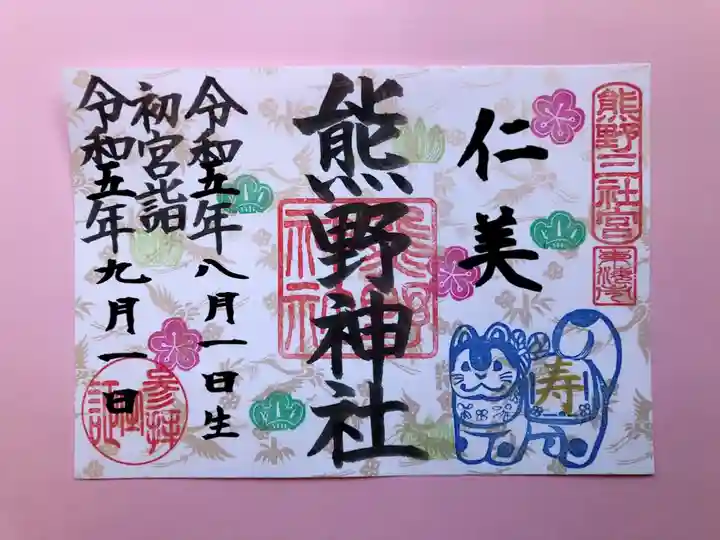 熊野三社宮
仁美
寿
熊野神社
熊野
神社
令和五年八月一日生
初宮詣
令和五年九月一日
参拝